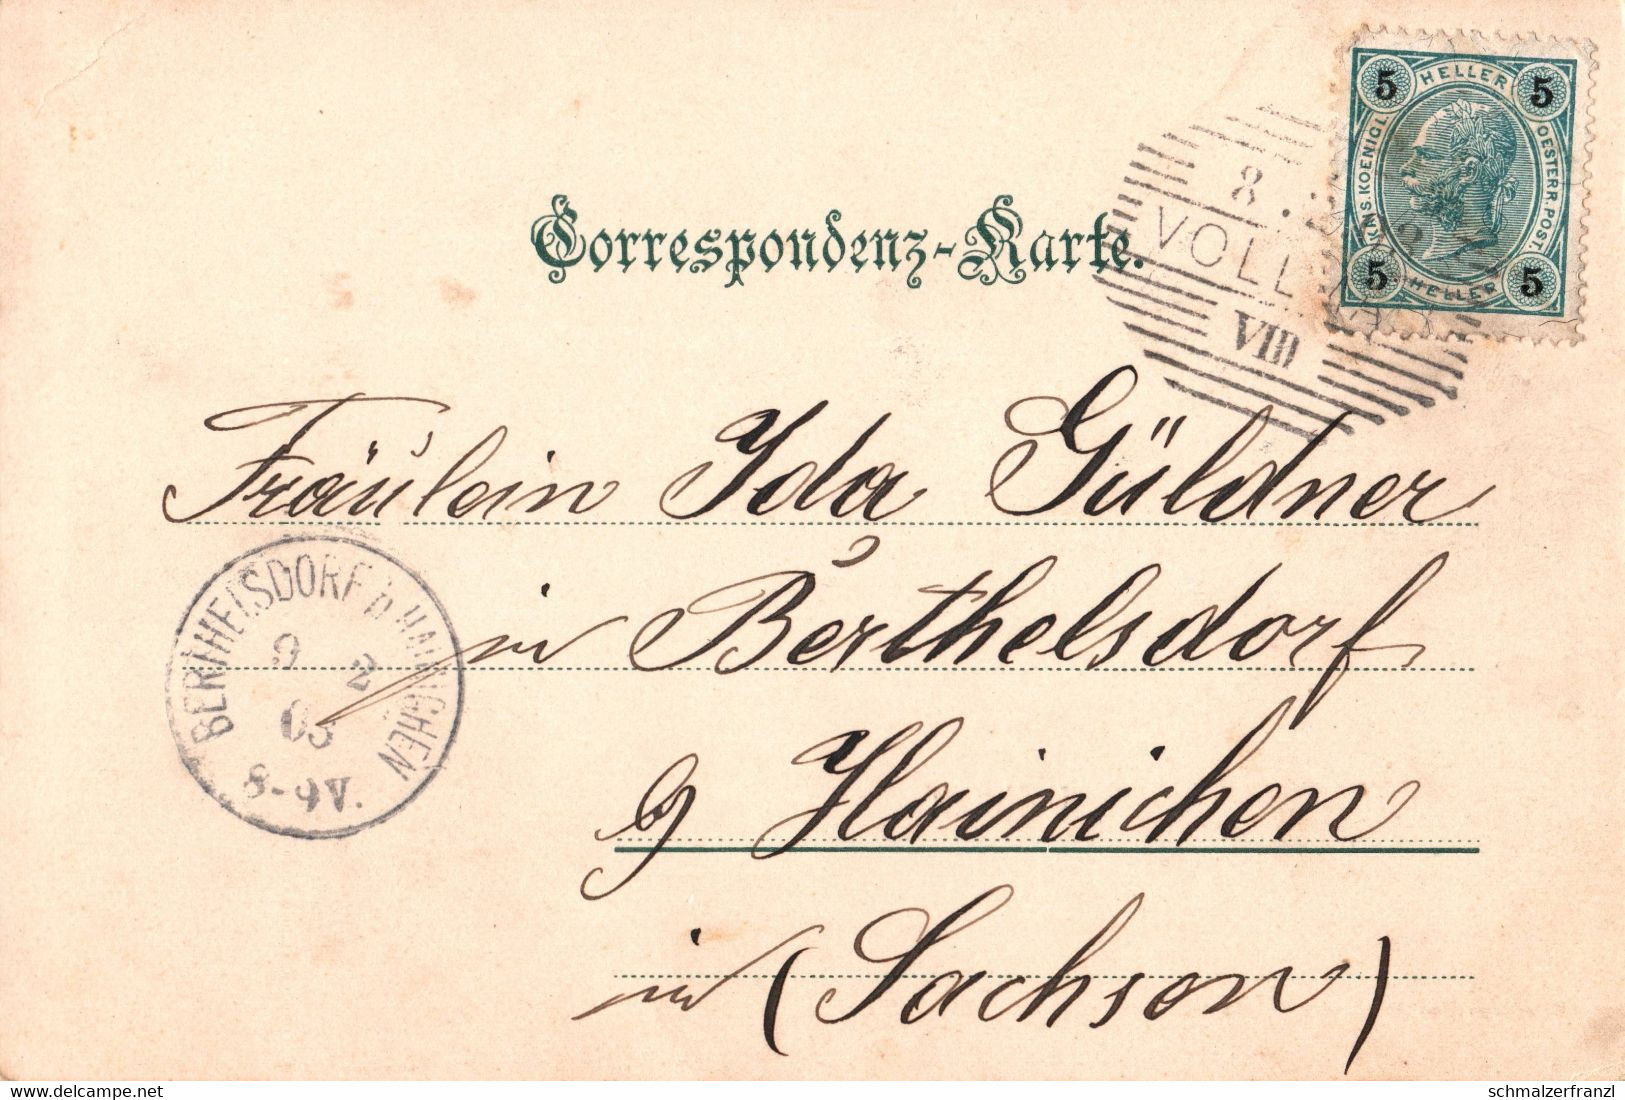 5 HELLER 5
KAIS. KOENIGL. OESTERR. POST.
5 HELLER 5
8
VOLL
VIII
Correspondenz-Karte.
Fräulein Ida Güldner
in Berthelsdorf
b/ Hainichen
in (Sachsen)
BERTHELSDORF b. HAINICHEN
9 2
03
8-9V.
www.delcampe.net
schmalzerfranzl